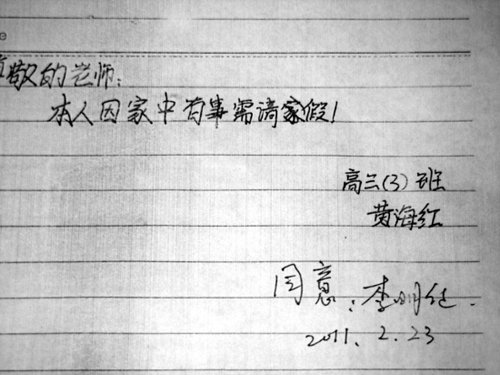 尊敬的老师：
本人因家中有事需请家假！
高三(3)班
黄海红
同意：李明任.
2011.2.23